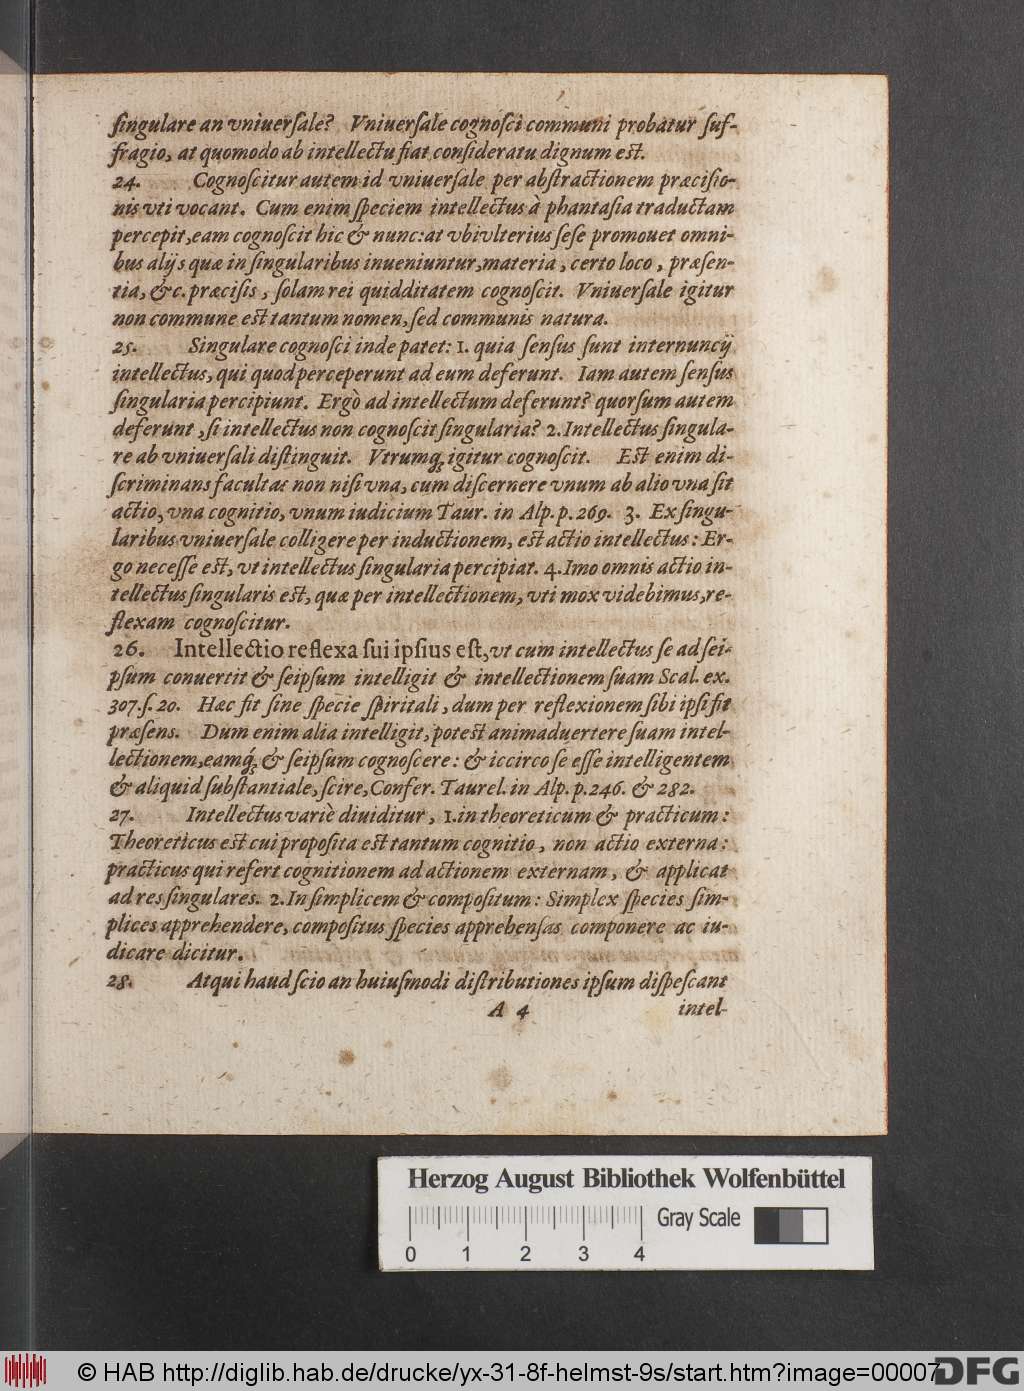 ſingulare an vniuerſale? Vniuerſale cognoſci communi probatur ſuf-
fragio, at quomodo ab intellectu fiat conſideratu dignum est.
24. Cognoſcitur autem id vniuerſale per abſtractionem præciſio-
nis vti vocant. Cum enim ſpeciem intellectus à phantaſia traductam
percepit, eam cognoſcit hic & nunc: at vbi vlterius ſeſe promouet omni-
bus alijs quæ in ſingularibus inueniuntur, materia, certo loco, præſen-
tia, &c. præciſis, ſolam rei quidditatem cognoſcit. Vniuerſale igitur
non commune est tantum nomen, ſed communis natura.
25. Singulare cognoſci inde patet: 1. quia ſenſus ſunt internuncij
intellectus, qui quod perceperunt ad eum deferunt. Iam autem ſenſus
ſingularia percipiunt. Ergò ad intellectum deferunt? quorſum autem
deferunt, ſi intellectus non cognoſcit ſingularia? 2. Intellectus ſingula-
re ab vniuerſali diſtinguit. Vtrumq; igitur cognoſcit. Est enim di-
ſcriminans facultas non niſi vna, cum diſcernere vnum ab alio vna ſit
actio, vna cognitio, vnum iudicium Taur. in Alp. p. 269. 3. Ex ſingu-
laribus vniuerſale colligere per inductionem, est actio intellectus: Er-
go neceſſe est, vt intellectus ſingularia percipiat. 4. Imo omnis actio in-
tellectus ſingularis est, quæ per intellectionem, vti mox videbimus, re-
flexam cognoſcitur.
26. Intellectio reflexa ſui ipſius eſt, vt cum intellectus ſe ad ſei-
pſum conuertit & ſeipſum intelligit & intellectionem ſuam Scal. ex.
307. ſ. 20. Hæc fit ſine ſpecie ſpiritali, dum per reflexionem ſibi ipſi fit
præſens. Dum enim alia intelligit, potest animaduertere ſuam intel-
lectionem, eamq́; & ſeipſum cognoſcere: & iccirco ſe eſſe intelligentem
& aliquid ſubſtantiale, ſcire, Confer. Taurel. in Alp. p. 246. & 282.
27. Intellectus variè diuiditur, 1. in theoreticum & practicum:
Theoreticus est cui propoſita est tantum cognitio, non actio externa:
practicus qui refert cognitionem ad actionem externam, & applicat
ad res ſingulares. 2. In ſimplicem & compoſitum: Simplex ſpecies ſim-
plices apprehendere, compoſitus ſpecies apprehenſas componere ac iu-
dicare dicitur.
28. Atqui haud ſcio an huiuſmodi diſtributiones ipſum diſpeſcant
A 4 intel-
Herzog August Bibliothek Wolfenbüttel
Gray Scale
0 1 2 3 4
© HAB http://diglib.hab.de/drucke/yx-31-8f-helmst-9s/start.htm?image=00007
DFG